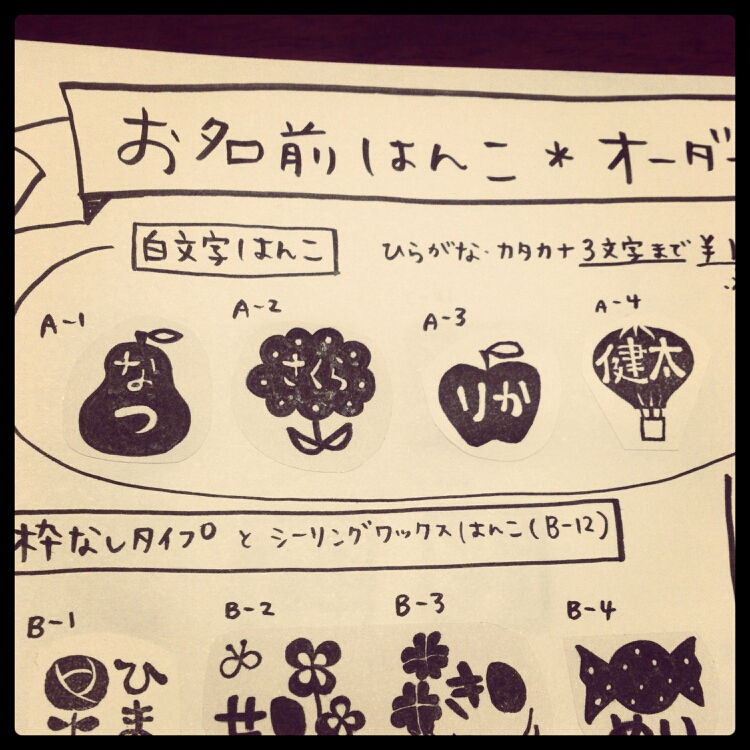 お名前はんこ＊オーダー
白文字はんこ
ひらがな・カタカナ3文字まで ¥1
A-1
A-2
A-3
A-4
なつ
さくら
りか
健太
枠なしタイプ と シーリングワックスはんこ(B-12)
B-1
B-2
B-3
B-4
ひま